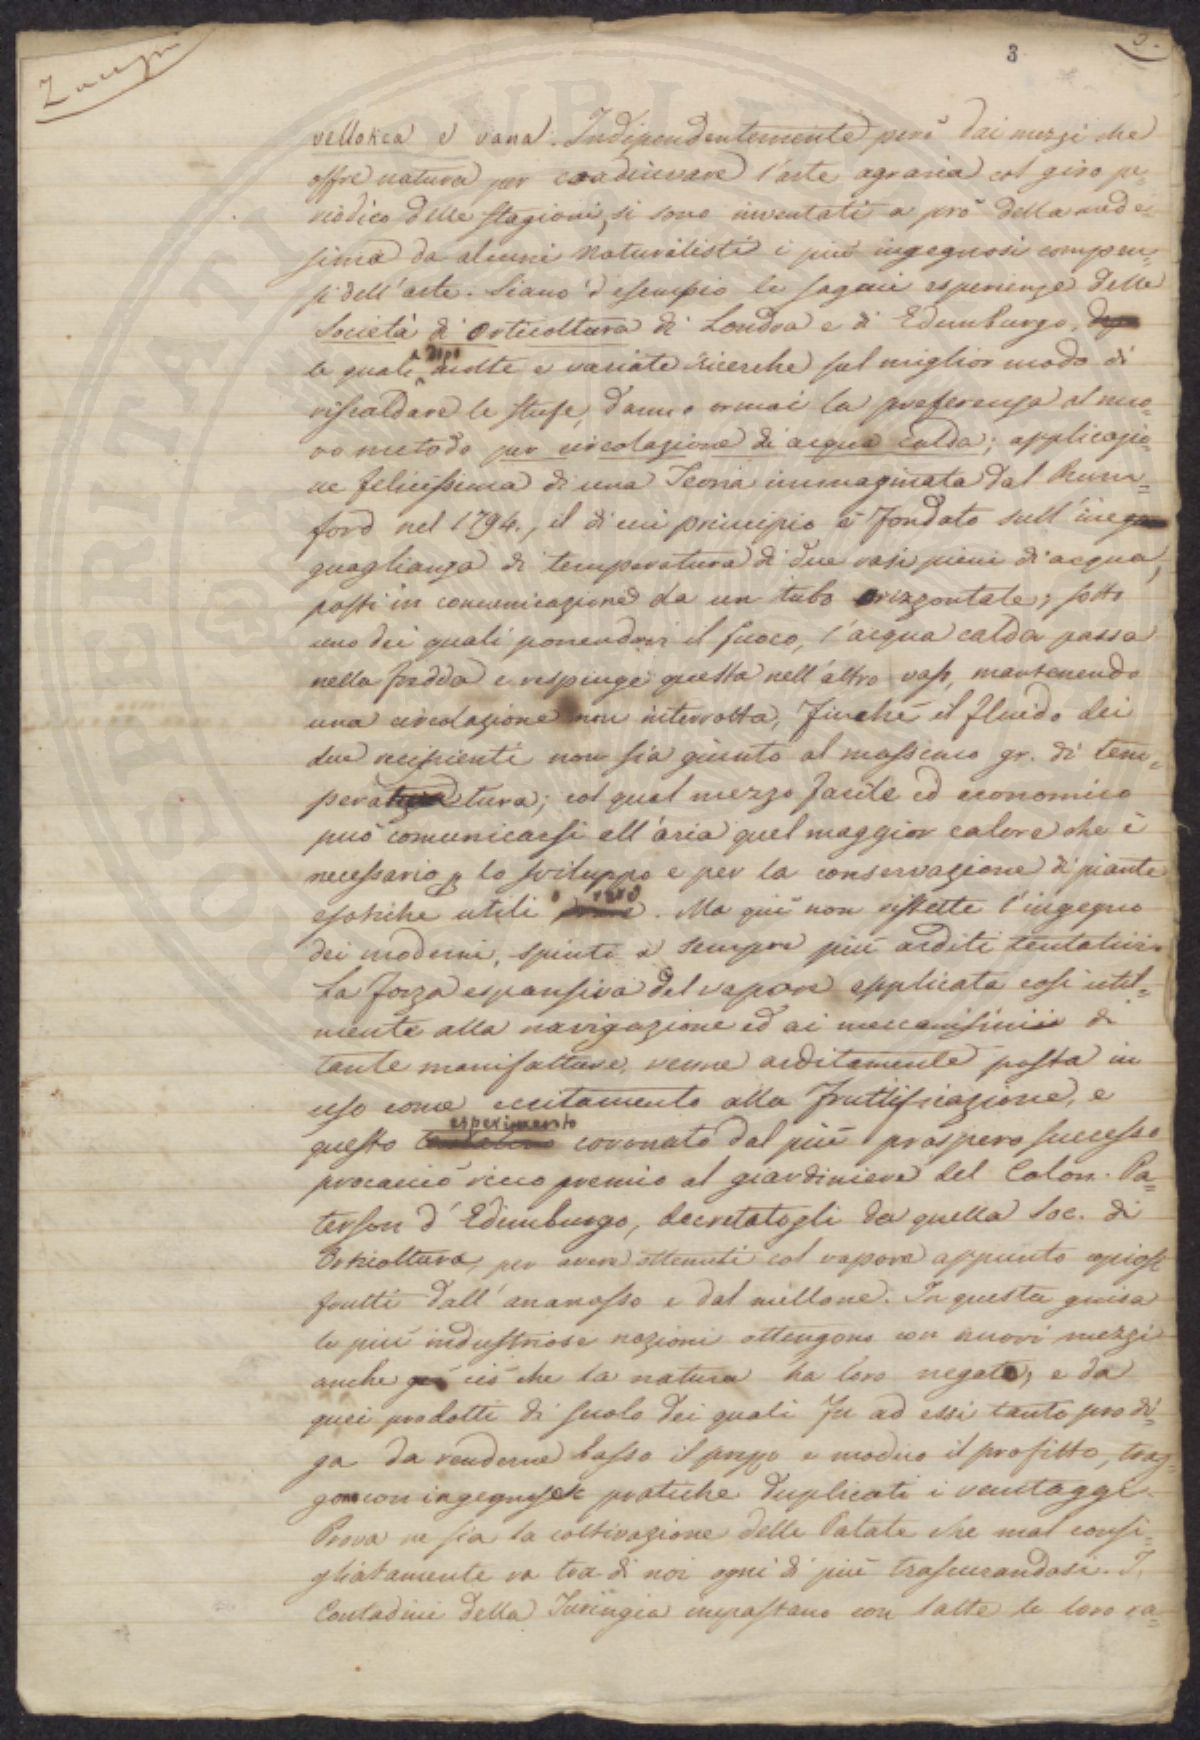 Zuccagni
3
3.
vellonea e vana. Indipendentemente però dai mezzi che
offre natura per coadiuvare l'arte agraria col giro pe-
riodico delle stagioni, si sono inventati a prò della mede-
sima da alcuni naturalisti i più ingegnosi compen-
si dell'arte. Siano d'esempio le sagaci esperienze delle
Società di Orticoltura di Londra e di Edimburgo,
le quali dopo molte e variate ricerche sul miglior modo di
riscaldare le stufe, danno ormai la preferenza al nuo-
vo metodo per circolazione di acqua calda; applicazio-
ne felicissima di una Teoria immaginata dal Rum=
ford nel 1794., il di cui principio è fondato sull'ine
guaglianza di temperatura di due vasi pieni di acqua,
posti in comunicazione da un tubo orizzontale; sotto
uno dei quali ponendovi il fuoco, l'acqua calda passa
nella fredda e respinge questa nell'altro vaso, mantenendo
una circolazione non interrotta, finchè il fluido dei
due recipienti non sia giunto al massimo gr. di tem=
peratura; col qual mezzo facile ed economico
può comunicarsi all'aria quel maggior calore che è
necessario p lo sviluppo e per la conservazione di piante
esotiche utili o rare. Ma quì non ristette l'ingegno
dei moderni, spinti a sempre più arditi tentativi.
La forza espansiva del vapore applicata così util-
mente alla navigazione ed ai meccanismi di
tante manifatture, venne arditamente posta in
uso come eccitamento alla fruttificazione, e
questo esperimento coronato dal più prospero successo
procacciò ricco premio al giardiniere del Colon. Pa=
terson d'Edimburgo, decretatogli da quella Soc. di
Orticoltura, per avere ottenuti col vapore appunto copiosi
frutti dall'ananasso e dal mellone. In questa guisa
le più industriose nazioni ottengono con nuovi mezzi
anche ciò che la natura ha loro negato; e da
quei prodotti di suolo dei quali fu ad essi tanto prodi-
ga da renderne basso il prezzo e modico il profitto, trag-
gon con ingegnose pratiche duplicati i vantaggi.
Prova ne sia la coltivazione delle Patate che mal consi=
gliatamente va tra di noi ogni dì più trascurandosi. I
Contadini della Turingia impastano con latte le loro pa=